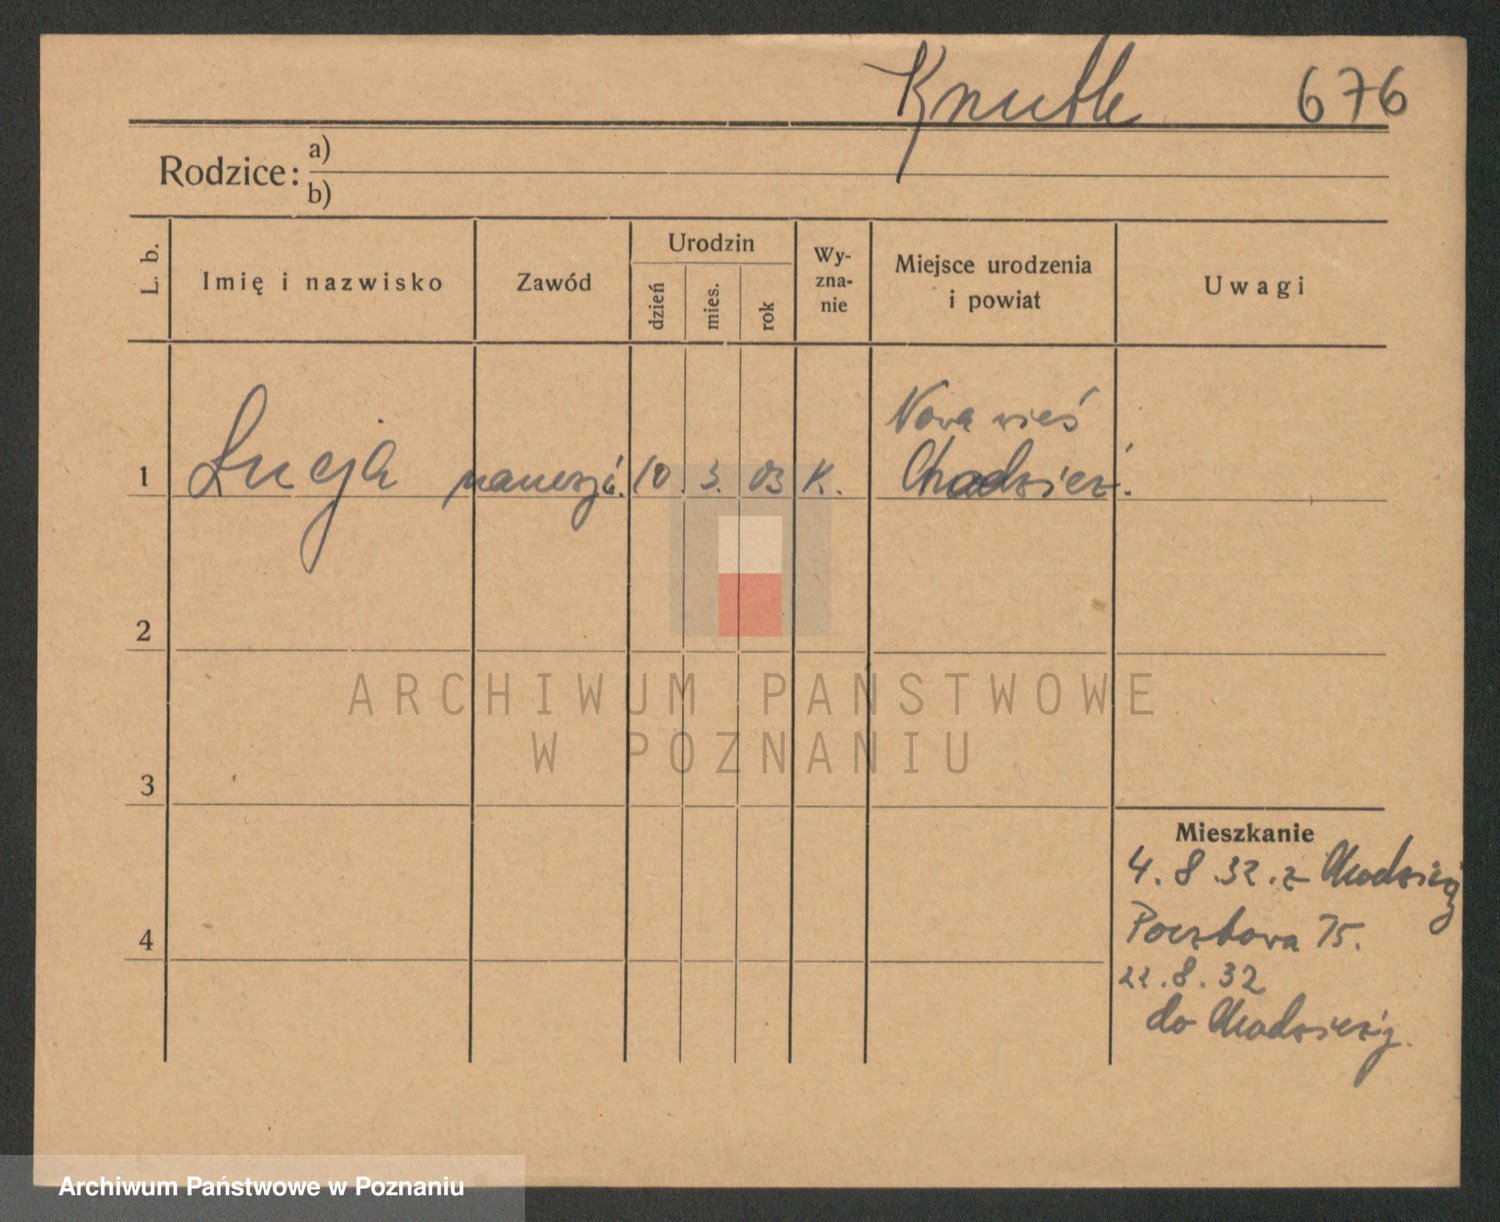 Knuth 676
Rodzice: a)
b)
L. b. Imię i nazwisko Zawód Urodzin dzień mies. rok Wy-zna-nie Miejsce urodzenia i powiat Uwagi
Nowa wieś
1 Łucja nauczyc. 10. 3. 03 K. Chodzież.
2
ARCHIWUM PAŃSTWOWE
W POZNANIU
3
Mieszkanie
4. 8. 32. z Chodzieży
Pocztowa 75.
4
22. 8. 32
do Chodzieży.
Archiwum Państwowe w Poznaniu